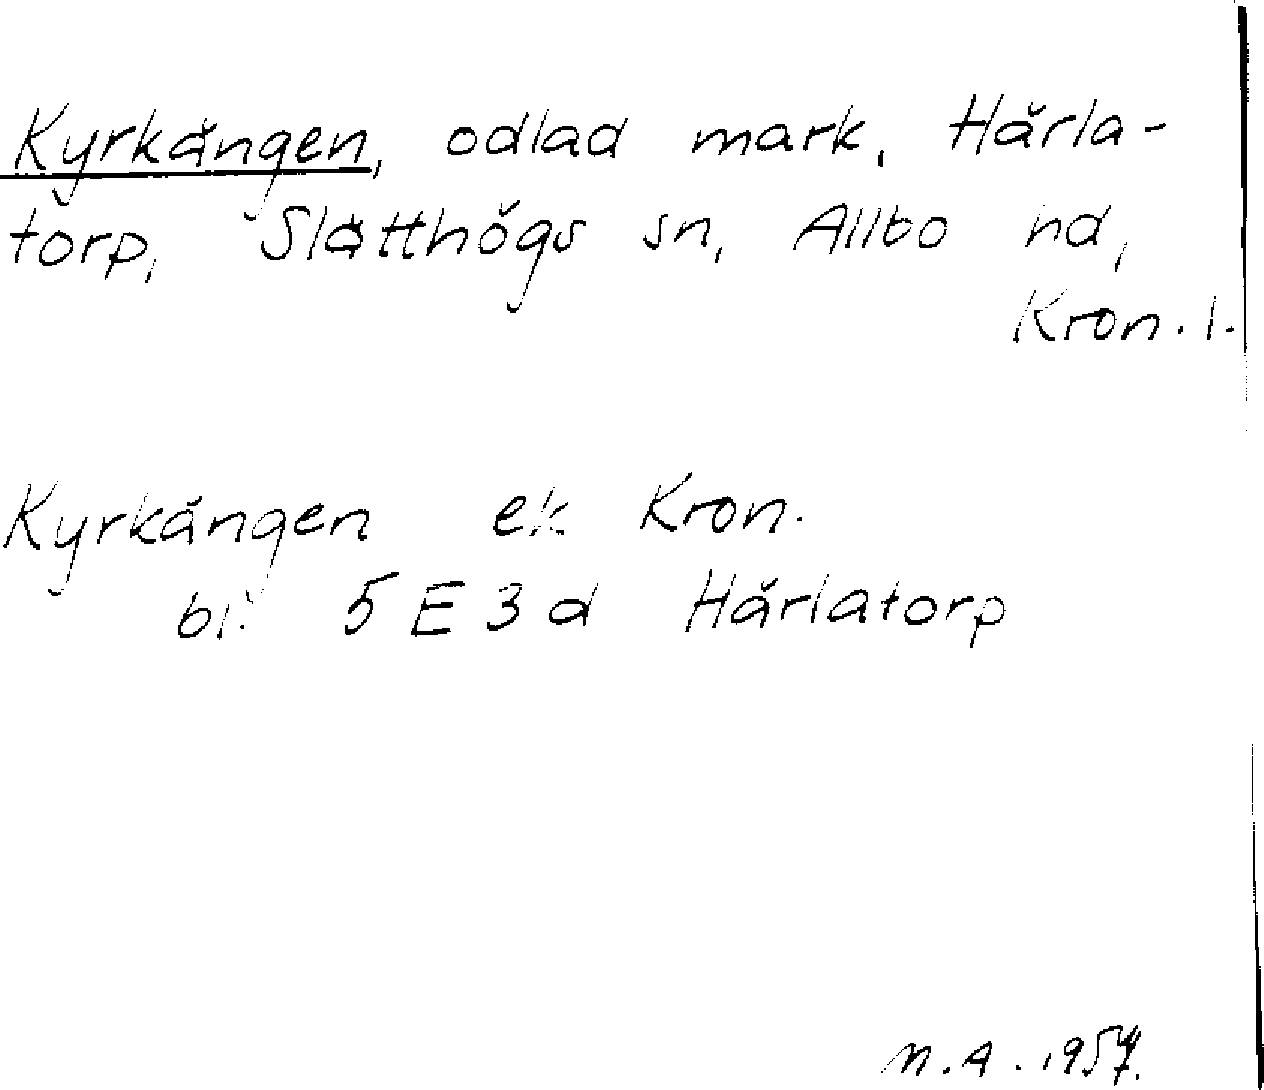 Kyrkängen, odlad mark, Härla-
torp, Slätthögs sn, Allbo hd,
Kron. l.
Kyrkängen ek Kron.
bl. 5 E 3 d Härlatorp
N. A. 1957.